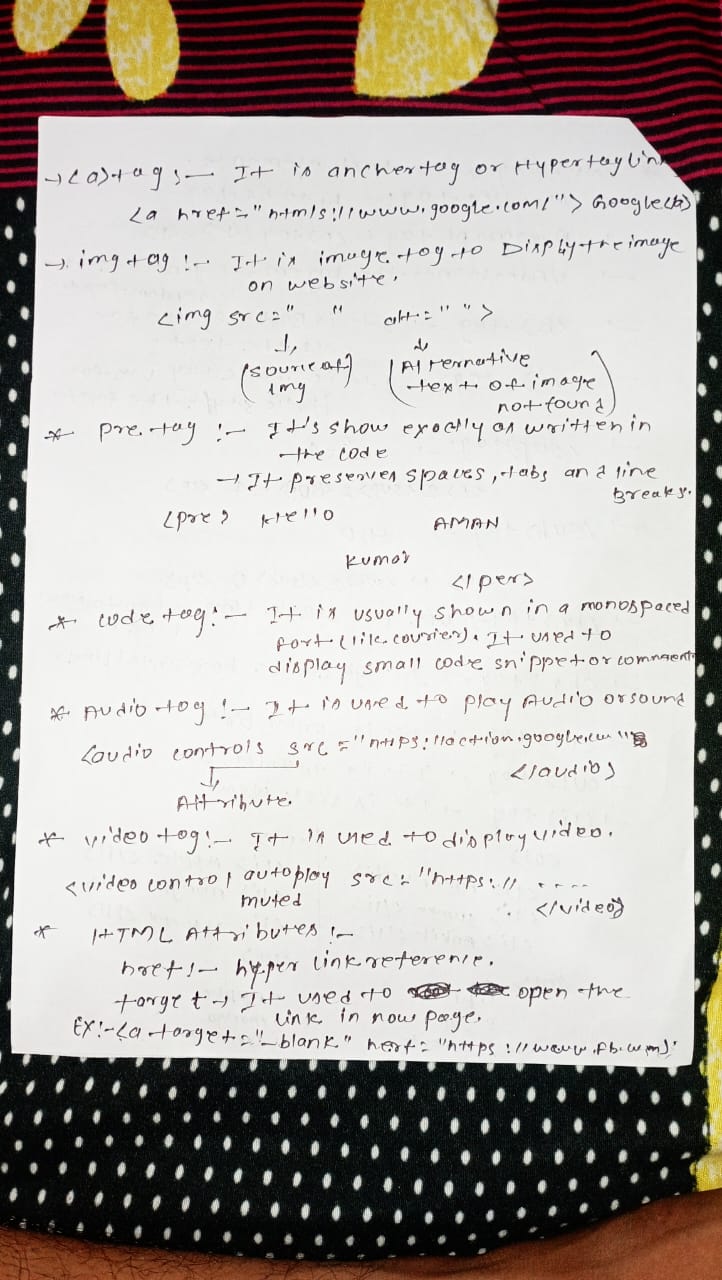 → <a> tag :- It is anchertag or Hypertag Link
<a href="htmls://www.google.com/"> Google</a>
→ img tag :- It is image tag to Display the image
on website.
<img src="   "   alt=" ">
↓ ↓
(source of img) (Alternative text of image not found)
* pre. tag :- It's show exactly as written in
the code
→ It preserves spaces, tabs and line
Breaks.
<pre> Hello AMAN
Kumar
</per>
* code tag :- It is usually shown in a monospaced
font (like. courier). It used to
display small code snippet or comment
* Audio tag :- It is used to play Audio or sound
<audio controls src="https://action.google.com"
</audio>
↓
Attribute.
* video tag :- It is used to display video.
<video control autoplay src="https://....
muted .. </video>
* HTML Attributes :-
href :- hyper link reference.
target → It used to open the
link in now page.
Ex:- <a target="_blank" herf="https://www.fb.com">